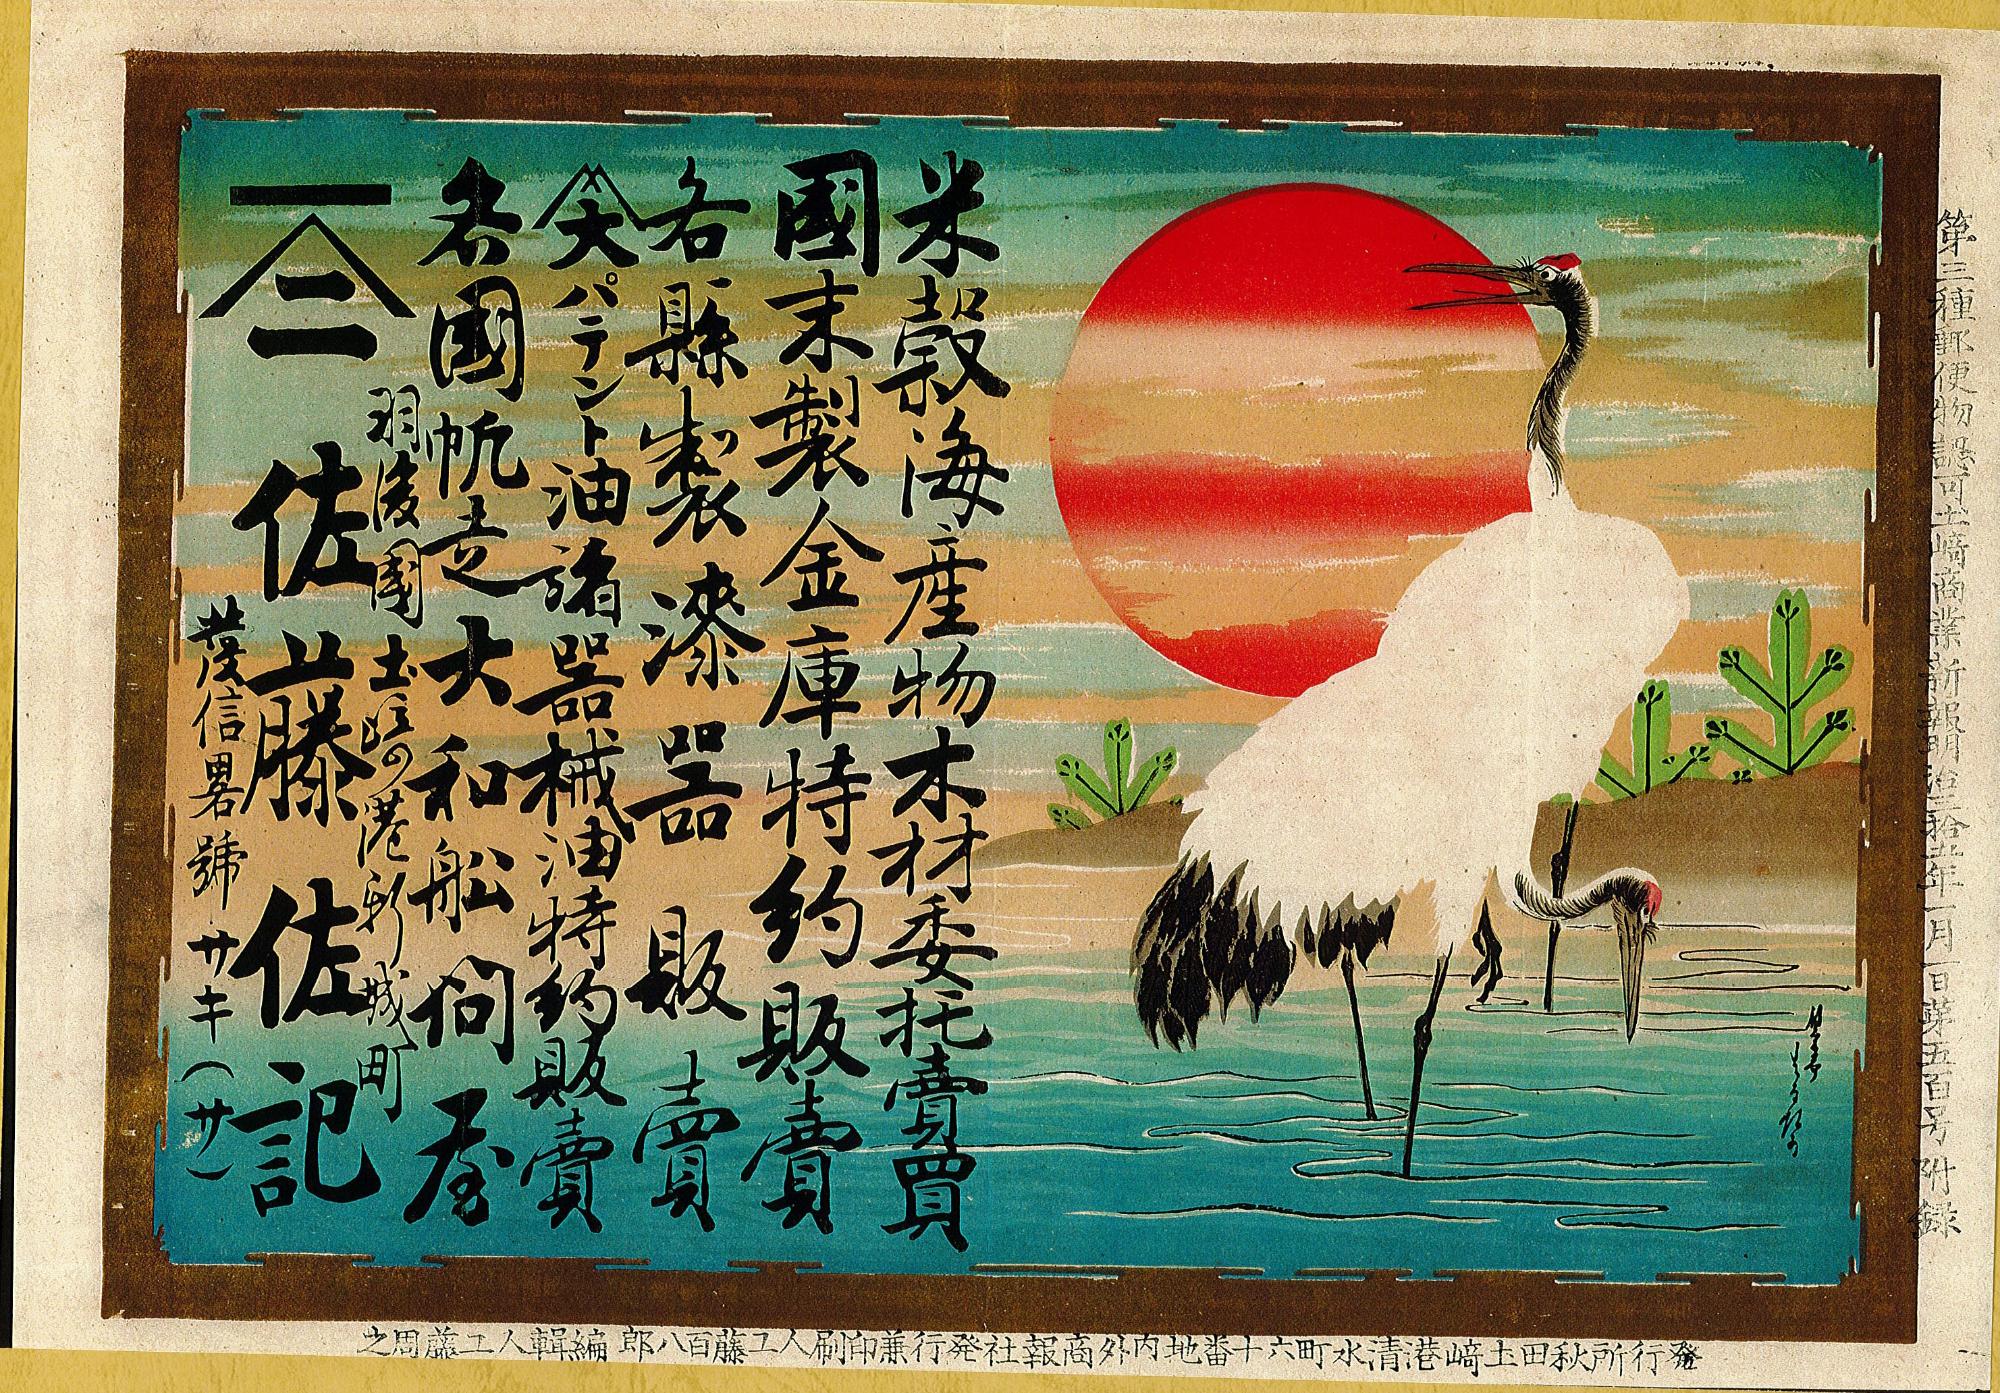 第三種郵便物認可土崎商業新報明治三拾五年一月一日第五百号附録
米穀海産物木材委托賣買
國末製金庫特約販賣
各縣製漆器販賣
大パテント油諸器械油特約販賣
各國帆走大和船問屋
羽後國土崎港新城町
二 佐藤佐記
發信畧號 サキ(サ)
発行所秋田土崎港清水町六十番地内外商報社発行兼印刷人工藤百八郎編輯人工藤周之